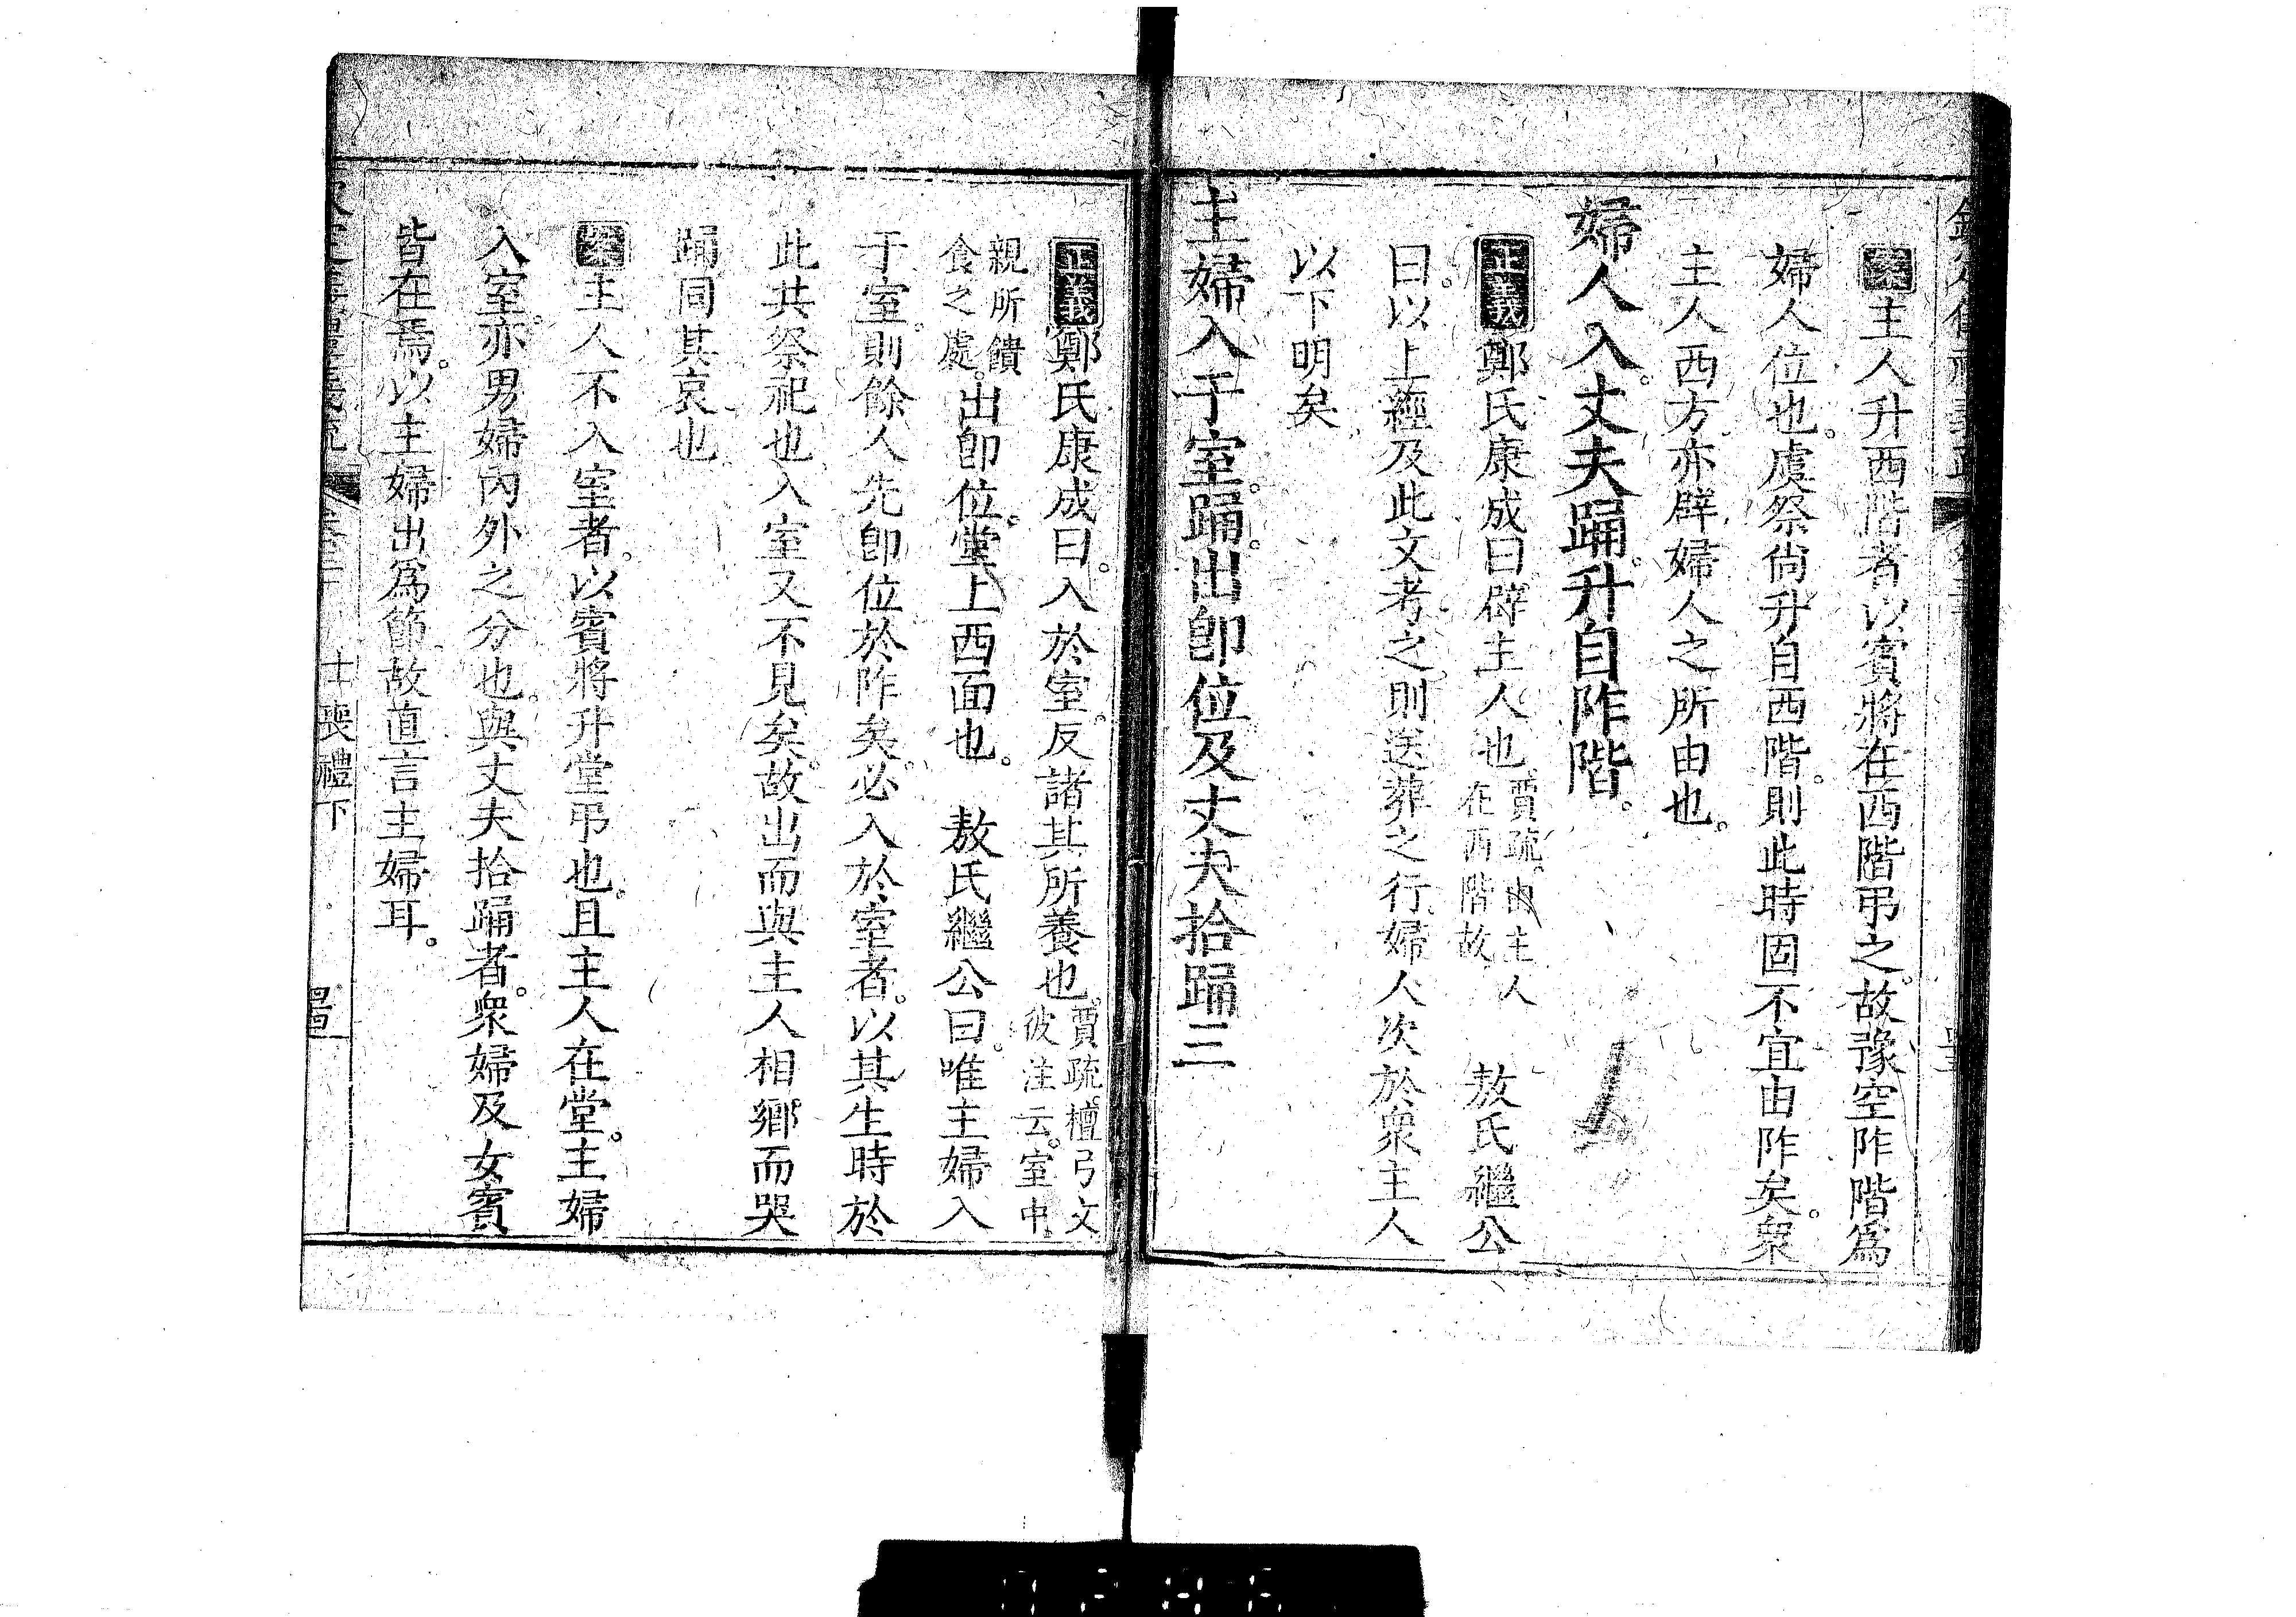 案主人升西階者以賓將在西階弔之故豫空阼階爲
婦人位也虞祭尙升自西階則此時固不宜由阼矣衆
主人西方亦辟婦人之所由也
婦人入丈夫踊升自阼階
正義鄭氏康成曰辟主人也賈疏由主人在西階故　敖氏繼公
曰以上經及此文考之則送葬之行婦人次於衆主人
以下明矣
主婦入于室踊出卽位及丈夫拾踊三
正義鄭氏康成曰入於室反諸其所養也賈疏檀弓文彼注云室中
親所饋食之處出卽位堂上西面也　敖氏繼公曰唯主婦入
于室則餘人先卽位於阼矣必入於室者以其生時於
此共祭祀也入室又不見矣故出而與主人相鄉而哭
踊同其哀也
案主人不入室者以賓將升堂弔也且主人在堂主婦
入室亦男婦內外之分也與丈夫拾踊者衆婦及女賓
皆在焉以主婦出爲節故直言主婦耳
士喪禮下